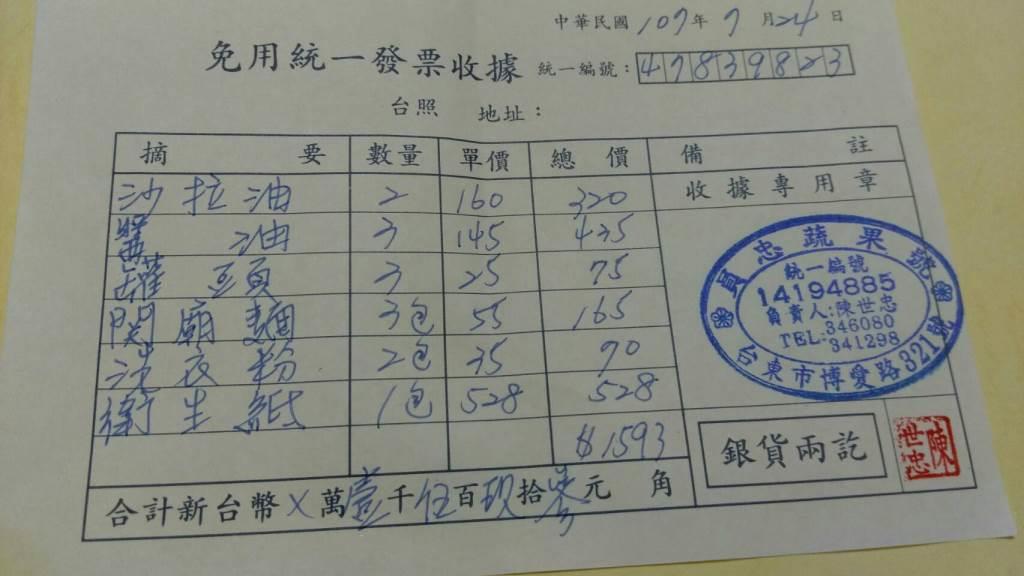 中華民國 107 年 7 月 24 日
免用統一發票收據 統一編號：47839823
台照 地址：
摘要 數量 單價 總價 備註
收據專用章
沙拉油 2 160 320
醬油 3 145 435
罐頭 3 25 75
関廟麵 3包 55 165
洗衣粉 2包 35 70
衛生紙 1包 528 528
$1593
員忠蔬果號
統一編號
14194885
負責人:陳世忠
TEL:346080
341298
台東市博愛路321號
銀貨兩訖
陳世忠
合計新台幣 X 萬壹千伍百玖拾參元 角